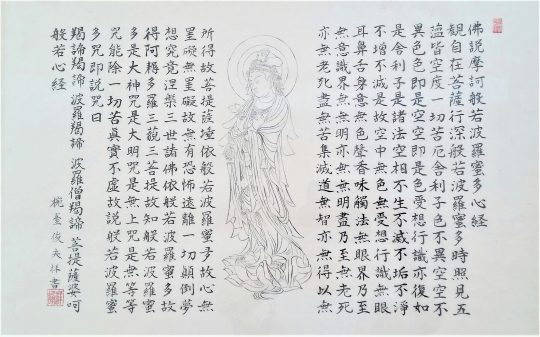 佛説摩訶般若波羅蜜多心経
観自在菩薩行深般若波羅蜜多時照見五
蘊皆空度一切苦厄舍利子色不異空空不
異色色即是空空即是色受想行識亦復如
是舍利子是諸法空相不生不滅不垢不淨
不增不減是故空中無色無受想行識無眼
耳鼻舌身意無色聲香味觸法無眼界乃至
無意識界無無明亦無無明盡乃至無老死
亦無老死盡無苦集滅道無智亦無得以無
所得故菩提薩埵依般若波羅蜜多故心無
罣礙無罣礙故無有恐怖遠離一切顛倒夢
想究竟涅槃三世諸佛依般若波羅蜜多故
得阿耨多羅三藐三菩提故知般若波羅蜜
多是大神咒是大明咒是無上咒是無等等
咒能除一切苦真實不虚故説般若波羅蜜
多咒即説咒曰
羯諦羯諦 波羅羯諦 波羅僧羯諦 菩提薩婆呵
般若心経
俊夫 書